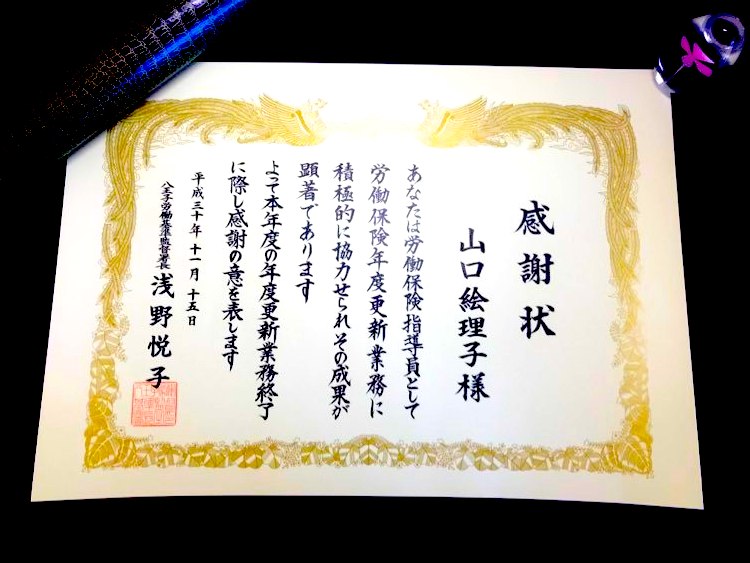 感謝状
山口絵理子様
あなたは労働保険指導員として
労働保険年度更新業務に
積極的に協力せられその成果が
顕著であります
よって本年度の年度更新業務終了
に際し感謝の意を表します
平成三十年十一月十五日
八王子労働基準監督署長 浅野悦子